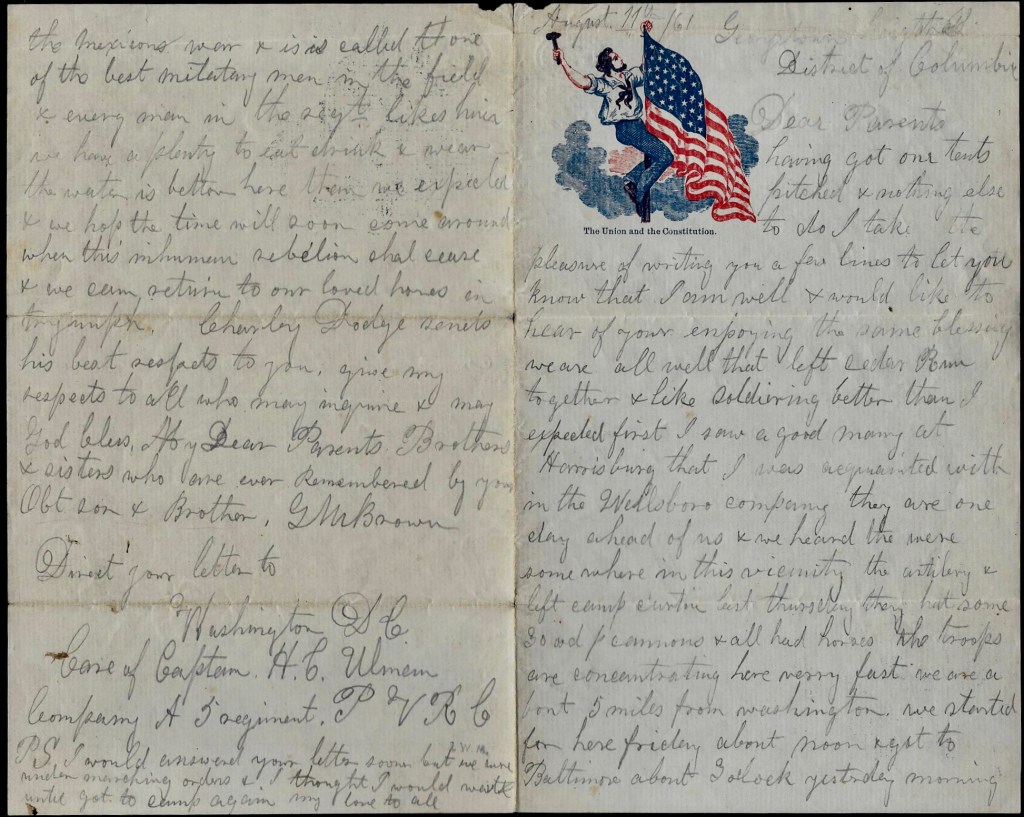 August 11th /61 Georgtown
District of Columbia
Dear Parents
having got our tents
pitched & nothing else
to do I take the
The Union and the Constitution.
pleasure of writing you a few lines to let you
know that I am well & would like to
hear of your enpoying the same blessing
we are all well that left cedar Run
together & like soldiering better than I
expected first I saw a good many at
Harrisburg that I was aquainted with
in the Wellsboro company they are one
day ahead of us & we heard the were
some where in this vicinity the artilery &
left camp curtin last thursday they hat some
30 cannons & all had horses the troops
are concantrating here verry fast we are a
bout 5 miles from washington. we started
for here friday about noon & got to
Baltimore about 3 olock yesterday morning
the mexicons war & is is called tt one
of the best military men in the field
& every man in the regt likes him
we have aplenty to eat drink & wear
the water is better here then we expected
& we hope the time will soon come around
when this inhuman rebelion shal cease
& we can return to our loved homes in
tryumph. Charley Dodge sends
his best respects to you, give my
respects to all who may inquire & may
God bless, My Dear Parents Brothers
& sisters who are ever Remembered by your
Obt son & Brother, G W Brown
Direct your letter to
Washington D C.
Care of Captain. H. C. Ulman
Company A 5 regiment, P V R C
PS, I would answered your letter sooner but we were
under marching orders & I thought I would wait
until got to camp again my love to all